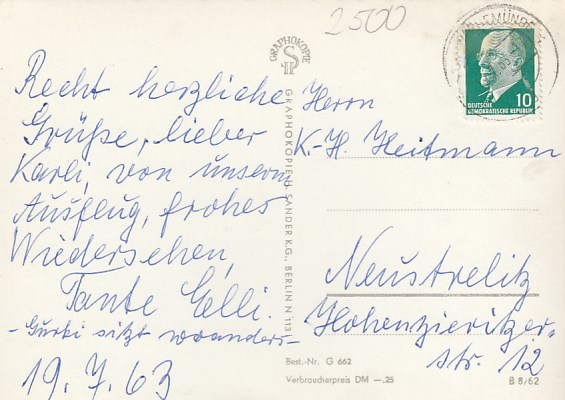 2500
Recht herzliche
Grüße, lieber
Karli, von unserm
Ausflug, frohes
Wiedersehen,
Tante Elli.
- Gurki sitzt woanders -
19.7.63
GRAPHOKOPIE
GRAPHOKOPIE H. SANDER K.G., BERLIN N 113
DEUTSCHE
DEMOKRATISCHE REPUBLIK
10
Herrn
K.-H. Heitmann
Neustrelitz
Hohenzieritzer-
str. 12
Best.-Nr. G 662
Verbraucherpreis DM —.25
B 8/62